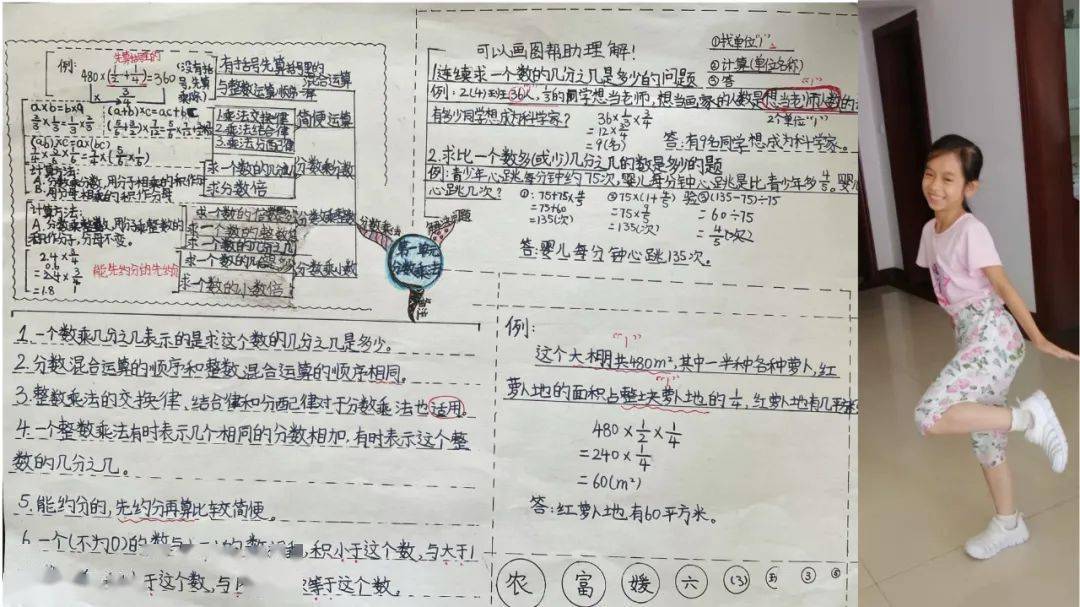 例:
先算括号里的
480×(1/2+1/4)=360
3/4
(没有括号,先算乘除)
有括号先算括号里的
与整数运算顺序一样
混合运算
a×b=b×a
2/3×1/5=1/5×2/3
(a+b)×c=ac+bc
(ab)×c=a×(bc)
1.乘法交换律
2.乘法结合律
3.乘法分配律
简便运算
计算方法:
求一个数的几分之几
求分数倍
分数乘分数
计算方法:
A.分数乘整数,用分子乘整数的积作分子,分母不变。
求一个数的整数倍
求一个数的几分之几
分数乘整数
2.4×3/4
=2.4×3/4
=1.8
能先约分的先约分
求一个数的几倍是多少
求一个数的小数倍
分数乘小数
分数乘法
第一单元
分数乘法
可以画图帮助理解!
①找单位“1”
②计算(单位名称)
③答
1.连续求一个数的几分之几是多少的问题
例:2(4)班36人,1/3的同学想当老师,想当画家的人数是想当老师人数的
有多少同学想成为科学家?
2个单位“1”
36×1/3×3/4
=12×3/4
=9(名)
答:有9名同学想成为科学家。
2.求比一个数多(或少)几分之几的数是多少的问题
例:青少年心跳每分钟约75次,婴儿每分钟心跳是比青少年多4/5。婴儿
心跳几次?
①:75+75×4/5
=75+60
=135(次)
②75×(1+4/5)
=75×9/5
=135(次)
验③(135-75)÷75
=60÷75
=4/5(次)
答:婴儿每分钟心跳135次。
1.一个数乘几分之几表示的是求这个数的几分之几是多少。
2.分数混合运算的顺序和整数混合运算的顺序相同。
3.整数乘法的交换律、结合律和分配律对于分数乘法也适用。
4.一个整数乘法有时表示几个相同的分数相加,有时表示这个整
数的几分之几。
5.能约分的,先约分再算比较简便。
6.一个(不为0)的数与
积小于这个数,与大于1
于这个数,与
等于这个数。
例:
“1”
这个大棚共480m²,其中一半种各种萝卜,红
“1”
萝卜地的面积占整块萝卜地的1/4,红萝卜地有几平方米
480×1/2×1/4
=240×1/4
=60(m²)
答:红萝卜地有60平方米。
农 富 媛 六 (3)